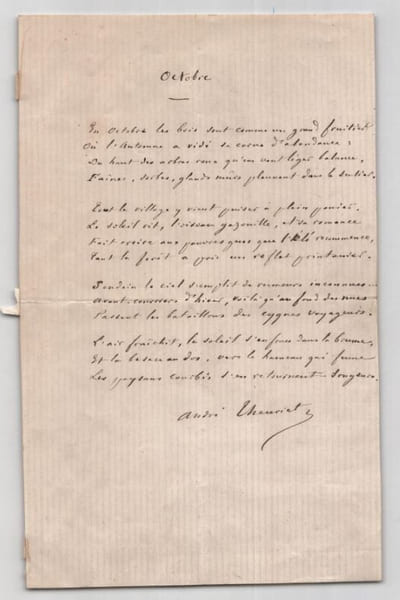 Octobre
En Octobre les bois sont comme un grand fruitier
Où l'Automne a vidé sa corne d'abondance :
Du haut des arbres roux qu'un vent léger balance,
Faînes, sorbes, glands mûrs pleuvent dans le sentier.
Tout le village y vient puiser à plein panier.
Le soleil rit, l'oiseau gazouille, et sa romance
Fait croire aux pauvres gens que l'Été recommence,
Tant la forêt a pris un reflet printanier.
Soudain le ciel s'emplit de rumeurs inconnues...
Avant-coureurs d'hiver, voilà qu'au fond des nues
Passent les bataillons des cygnes voyageurs.
L'air fraîchit, le soleil s'enfonce dans la brume,
Et la besace au dos, vers le hameau qui fume
Les paysans courbés s'en retournent songeurs.
André Theuriet